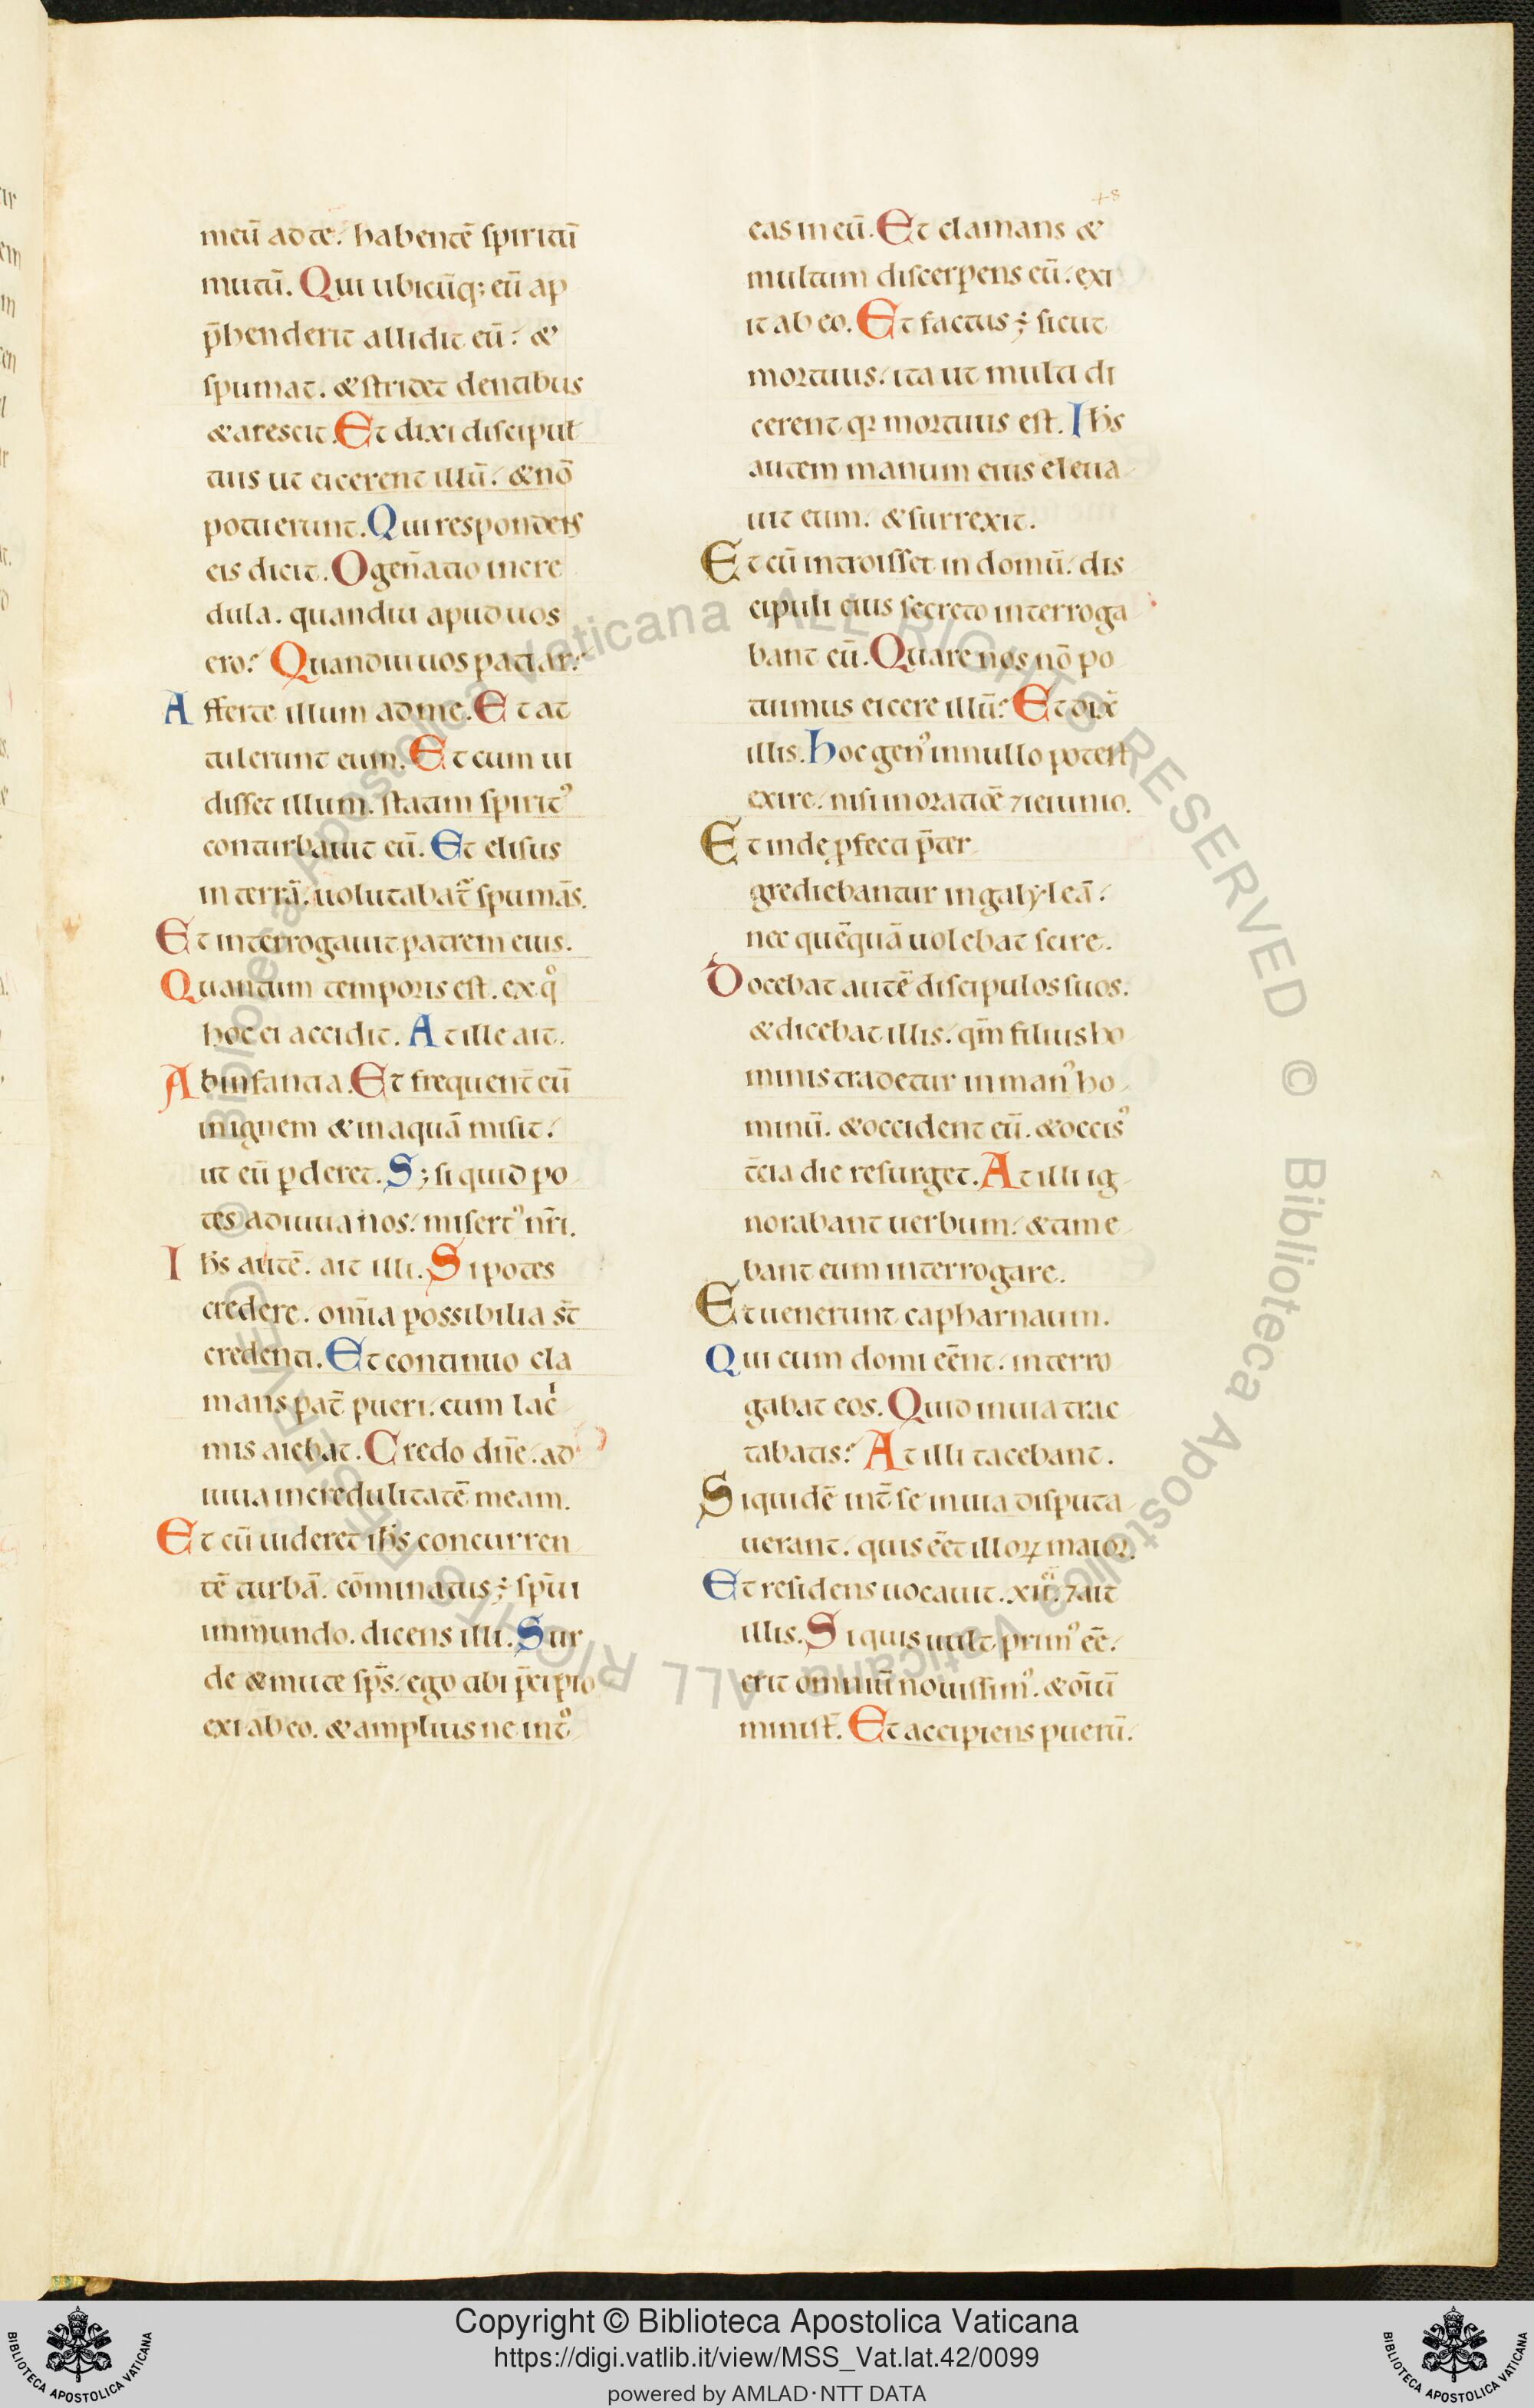 48
meū ad te. habentē spiritū
mutū. Qui ubicūq; eū ap
p̄henderit allidit eū: &
spumat. & stridet dentibus
& arescit. Et dixi discipul
tuis ut eicerent illū. & nō
potuerunt. Qui respondens
eis dicit. O gen̄atio incre
dula. quandiu apud uos
ero? Quandiu uos patiar?
Afferte illum ad me. Et at
tulerunt eum. Et cum ui
disset illum. statim spirit᾽
conturbauit eū. Et elisus
in terrā. uolutabat̄ spumās.
Et interrogauit patrem eius.
Quantum temporis est. ex qͦ
hoc ei accidit. At ille ait.
Ab infantia. Et frequent̄ eū
in ignem & in aquā misit.
ut eū ꝑderet. S; si quid po
tes adiuua nos. misert᾽ nr̄i.
Ih̄s autē. ait illi. Si potes
credere. om̄ia possibilia st̄
credenti. Et continuo cla
mans pat̄ pueri. cum lacⁱ
mis aiebat. Credo dn̄e. ad
iuua incredulitatē meam.
Et cū uideret ih̄s concurren
tē turbā. cōminatus ÷ sp̄ui
inmundo. dicens illi. Sur
de & mute sp̄s. ego tibi p̄cipio
exi ab eo. & amplius ne intͦ
eas in eū. Et clamans &
multum discerpens eū. exi
it ab eo. Et factus ÷ sicut
mortuus. ita ut multi di
cerent qꝛ mortuus est. Ih̄s
autem manum eius eleua
uit eum. & surrexit.
Et cū introisset in domū. dis
cipuli eius secreto interroga
bant eū. Quare nos nō po
tuimus eicere illū? Et dix̄
illis. Hoc gen᾽ in nullo potest
exire. nisi in oratiōe ⁊ ieiunio.
Et inde ꝓfecti p̄ter
grediebantur in galyleā.
nec quēquā uolebat scire.
Docebat autē discipulos suos.
& dicebat illis. qm̄ filius ho
minis tradetur in man᾽ ho
minū. & occident eū. & occis᾽
t̄cia die resurget. At illi ig
norabant uerbum. & time
bant eum interrogare.
Et uenerunt capharnaum.
Qui cum domi eēnt. interro
gabat eos. Quid in uia trac
tabatis? At illi tacebant.
Siquidē int̄ se in uia disputa
uerant. quis eēt illoꝝ maior.
Et residens uocauit. xii. ⁊ ait
illis. Si quis uult prim᾽ eē.
erit omniū nouissim᾽. & oīū
minist̄. Et accipiens puerū.
© Biblioteca Apostolica Vaticana ALL RIGHTS RESERVED © Biblioteca Apostolica Vaticana ALL RIGHTS RESERVED
BIBLIOTECA APOSTOLICA VATICANA
Copyright © Biblioteca Apostolica Vaticana
https://digi.vatlib.it/view/MSS_Vat.lat.42/0099
powered by AMLAD·NTT DATA
BIBLIOTECA APOSTOLICA VATICANA